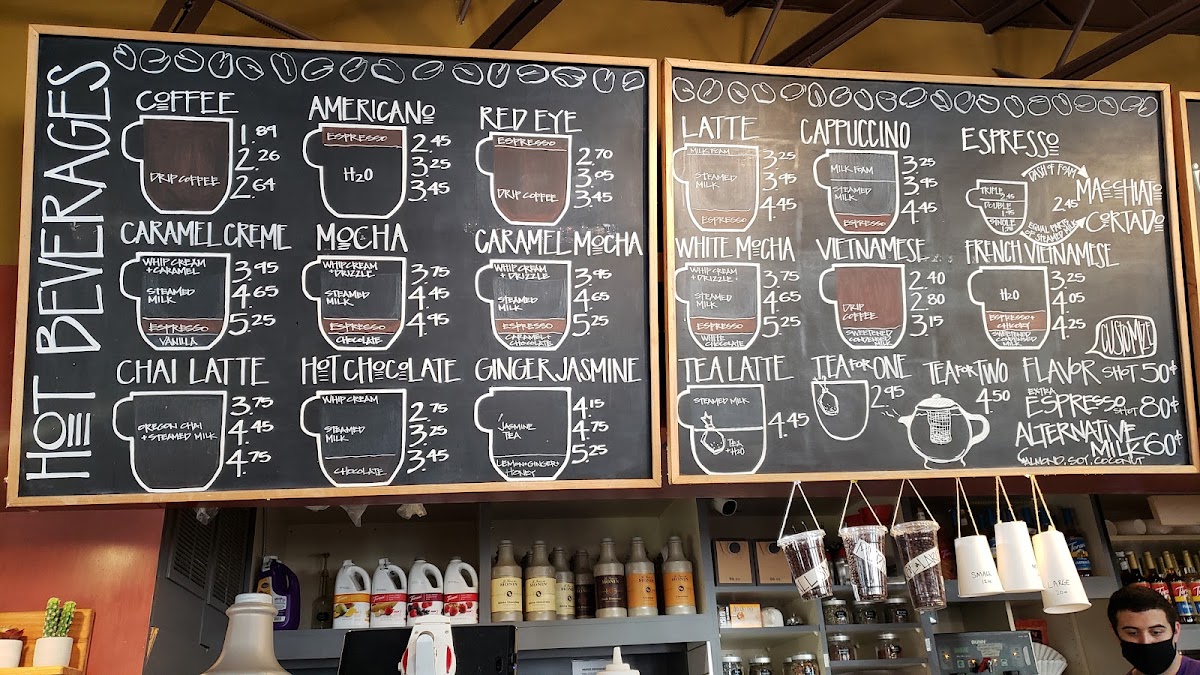 HOT BEVERAGES
COFFEE
DRIP COFFEE
1.89
2.26
2.64
AMERICANO
ESPRESSO
H2O
2.45
3.25
3.45
RED EYE
ESPRESSO
DRIP COFFEE
2.70
3.05
3.45
CARAMEL CREME
WHIP CREAM
+ CARAMEL
STEAMED
MILK
ESPRESSO
VANILLA
3.95
4.65
5.25
MOCHA
WHIP CREAM
+ DRIZZLE
STEAMED
MILK
ESPRESSO
CHOCOLATE
3.75
4.45
4.95
CARAMEL MOCHA
WHIP CREAM
+ DRIZZLE
STEAMED
MILK
ESPRESSO
CARAMEL +
CHOCOLATE
3.95
4.65
5.25
CHAI LATTE
OREGON CHAI
+ STEAMED MILK
3.75
4.45
4.75
HOT CHOCOLATE
WHIP CREAM
STEAMED
MILK
CHOCOLATE
2.75
3.25
3.45
GINGER JASMINE
JASMINE
TEA
LEMON + GINGER +
HONEY
4.15
4.75
5.25
LATTE
MILK FOAM
STEAMED
MILK
ESPRESSO
3.25
3.95
4.45
CAPPUCCINO
MILK FOAM
STEAMED
MILK
ESPRESSO
3.25
3.95
4.45
ESPRESSO
TRIPLE
2.45
DOUBLE
1.95
SINGLE
DASH OF FOAM
MACCHIATO
2.45
CORTADO
EQUAL PARTS
OF STEAMED MILK
WHITE MOCHA
WHIP CREAM
+ DRIZZLE
STEAMED
MILK
ESPRESSO
WHITE
CHOCOLATE
3.75
4.65
5.25
VIETNAMESE
DRIP
COFFEE
SWEETENED
CONDENSED
2.40
2.80
3.15
FRENCH VIETNAMESE
H2O
ESPRESSO +
CHICORY
SWEETENED
CONDENSED MILK
3.25
4.05
4.25
CUSTOMIZE
TEA LATTE
STEAMED MILK
TEA
+ H2O
4.45
TEA FOR ONE
2.95
TEA FOR TWO
4.50
FLAVOR SHOT 50¢
EXTRA
ESPRESSO SHOT 80¢
ALTERNATIVE
MILK 60¢
ALMOND, SOY, COCONUT
SMALL
12oz
LARGE
20oz